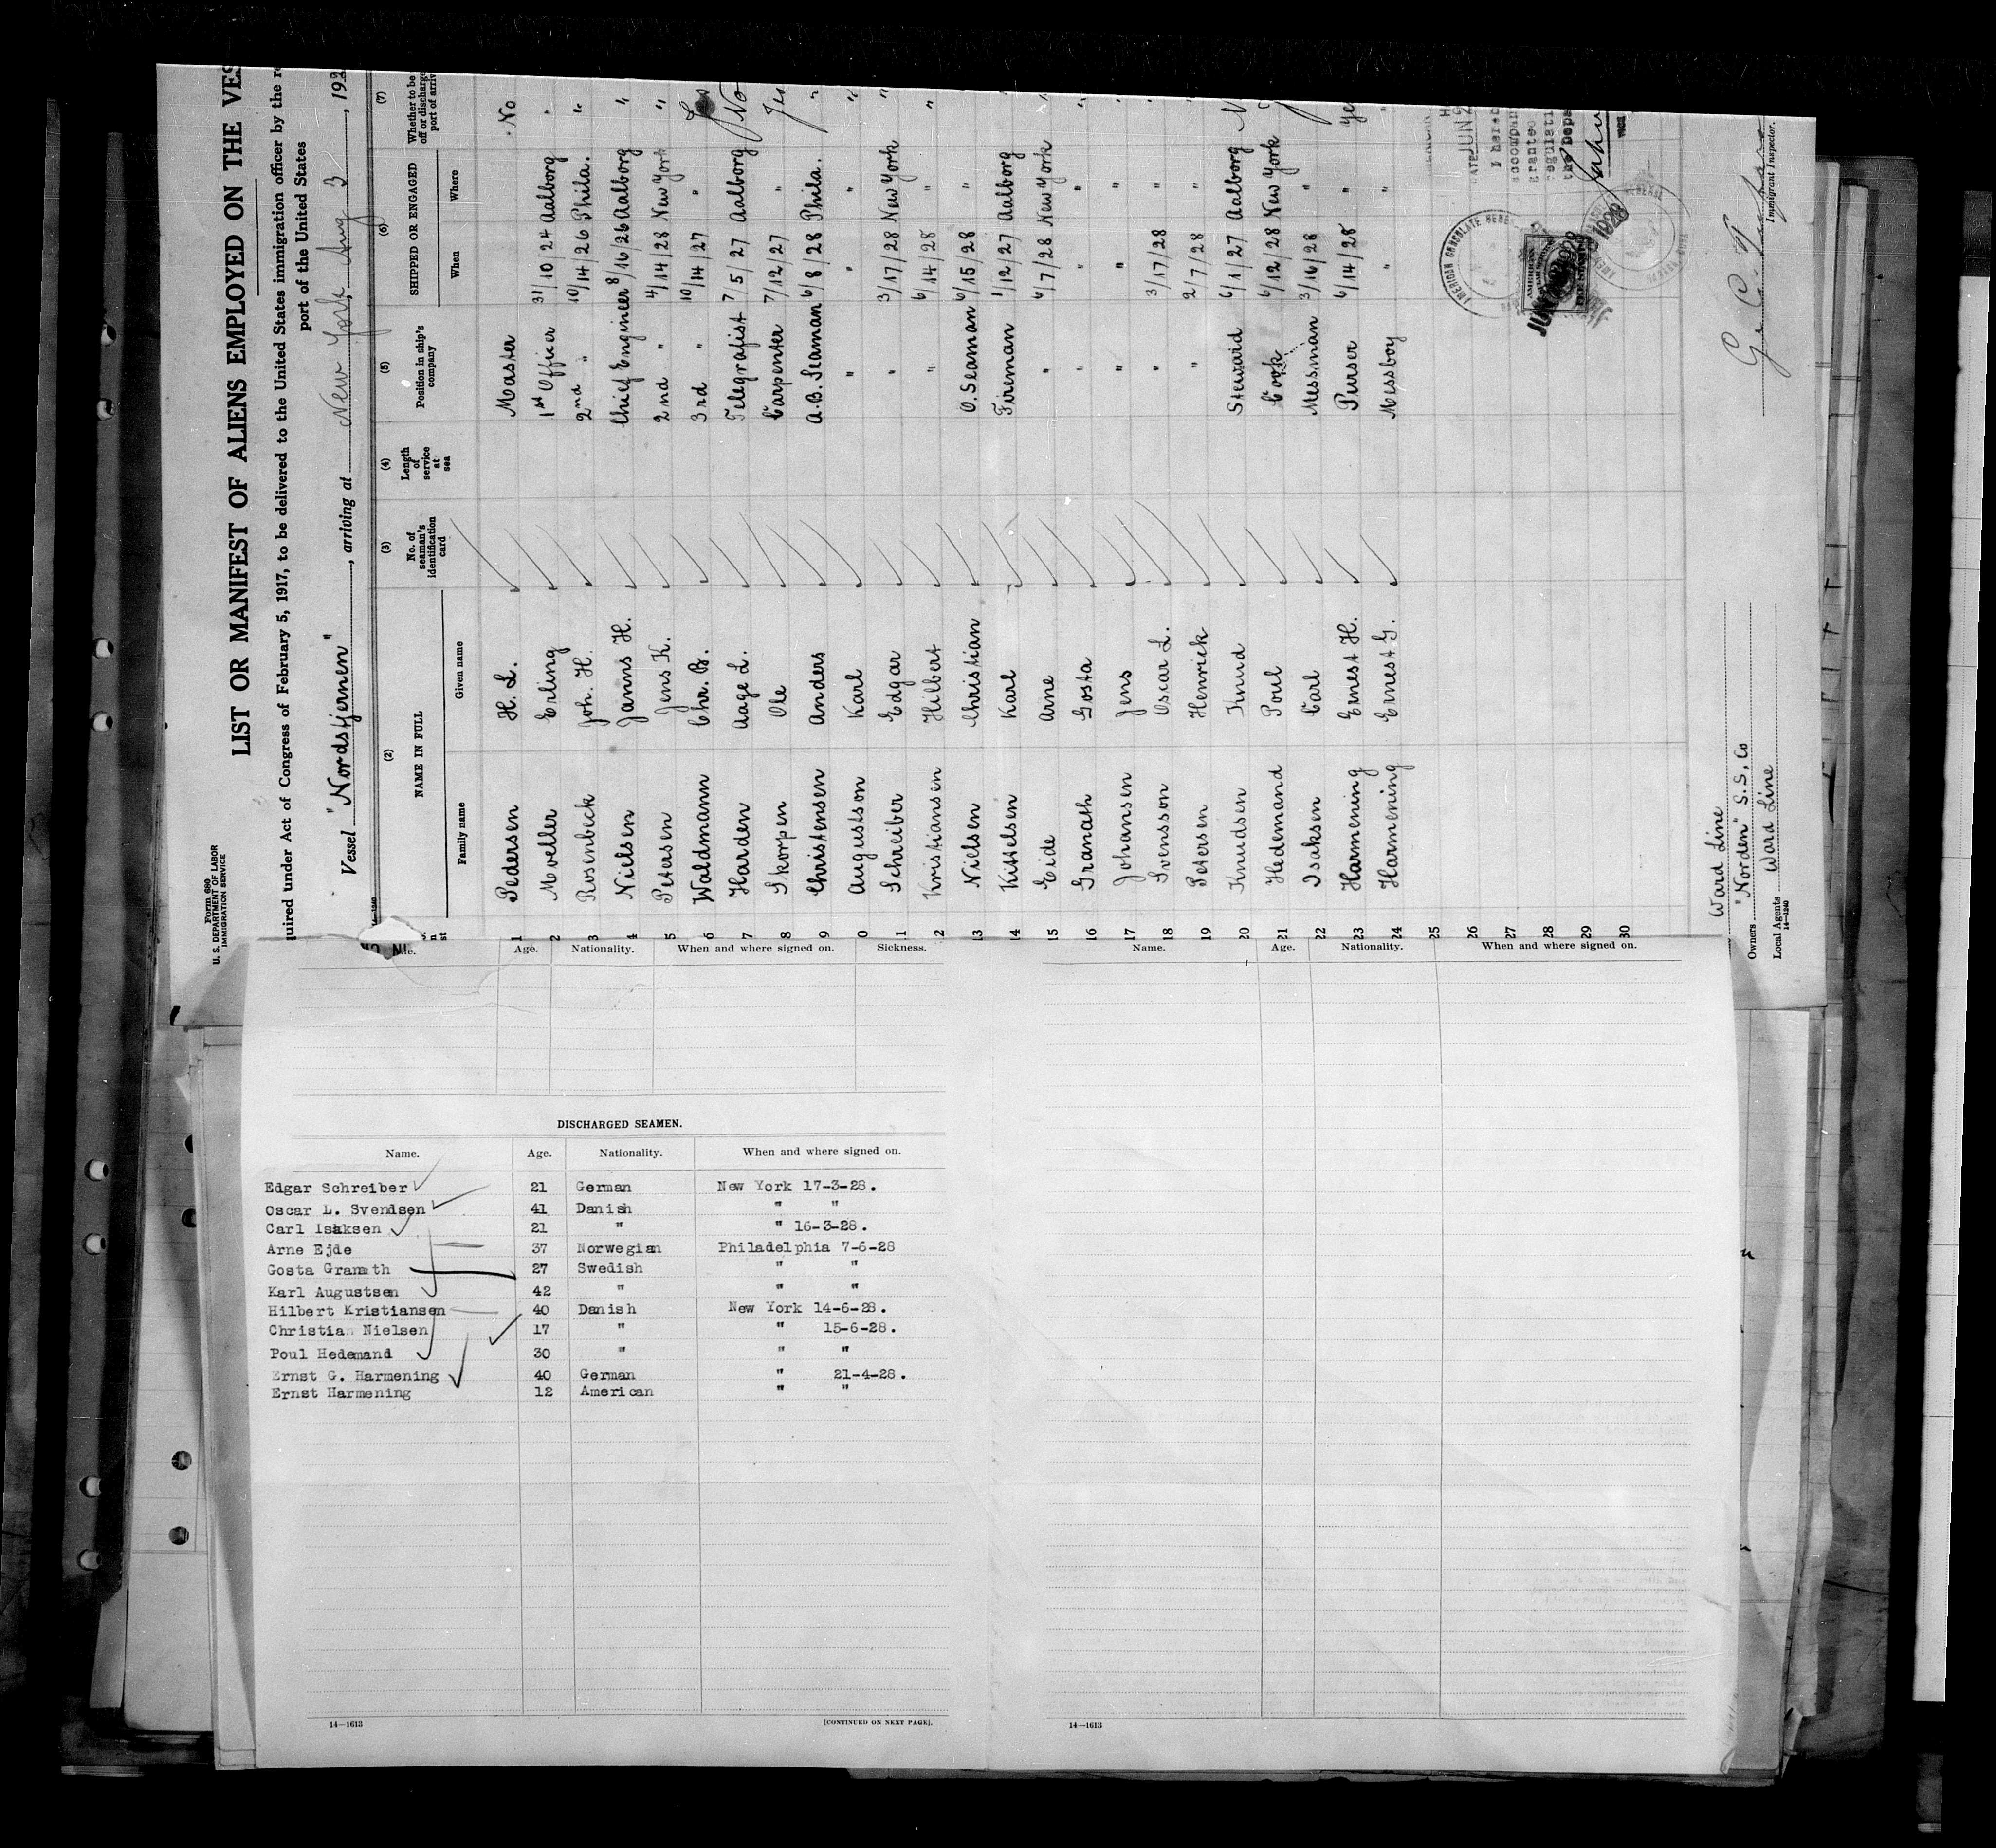 Form 680
U. S. DEPARTMENT OF LABOR
IMMIGRATION SERVICE
LIST OR MANIFEST OF ALIENS EMPLOYED ON THE VES
quired under Act of Congress of February 5, 1917, to be delivered to the United States immigration officer by the re
port of the United States
Vessel "Nordstjernen", arriving at New York, Aug 3, 192
(2) (3) (4) (5) (6) (7)
NAME IN FULL No. of seaman's identification card Length of service at sea Position in ship's company SHIPPED OR ENGAGED Whether to be off or discharge port of arriv
Family name Given name When Where
1 Pedersen H. L. Master No
2 Moeller Erling 1st Officer 31/10/24 Aalborg "
3 Rosenbeck Joh. H. 2nd " 10/14/26 Phila. "
4 Nielsen Janns H. Chief Engineer 8/16/26 Aalborg "
5 Petersen Jens K. 2nd " 4/14/28 New York "
6 Waldmann Chr. B. 3rd " 10/14/27 "
7 Harden Aage L. Telegrafist 7/5/27 Aalborg No
8 Skorpen Ole Carpenter 7/12/27 " Yes
9 Christensen Anders A.B. Seaman 6/8/28 Phila. "
0 Augustson Karl " " " "
1 Schreiber Edgar " 3/17/28 New York "
2 Kristiansen Hilbert " 6/14/28 " "
13 Nielsen Christian O. Seaman 6/15/28 "
14 Kittelsen Karl Fireman 1/12/27 Aalborg "
15 Eide Arne " 6/7/28 New York "
16 Granath Gosta " " " "
17 Johansen Jens " " " "
18 Svensson Oscar L. " 3/17/28 " "
19 Petersen Henrick " 2/7/28 " "
20 Knudsen Knud Steward 6/1/27 Aalborg
21 Hedemand Poul Cook 6/12/28 New York
22 Isaksen Carl Messman 3/16/28 "
23 Harmening Ernest H. Purser 6/14/28 " Ye
24 Harmening Ernest G. Messboy " " "
25
26
27
28
29
30
AMERICAN CONSULATE GENERAL
DATE JUN 2
I hereb
accompan
grante
regulati
the Depa
JUN 1928
Ward Line
Owners "Norden" S. S. Co
Local Agents Ward Line
14—1240
Immigrant Inspector.
Age. Nationality. When and where signed on. Sickness.
Name. Age. Nationality. When and where signed on.
DISCHARGED SEAMEN.
Name. Age. Nationality. When and where signed on.
Edgar Schreiber 21 German New York 17-3-28.
Oscar L. Svendsen 41 Danish " "
Carl Isaksen 21 " " 16-3-28.
Arne Ejde 37 Norwegian Philadelphia 7-6-28
Gosta Granath 27 Swedish " "
Karl Augustsen 42 " " "
Hilbert Kristiansen 40 Danish New York 14-6-28.
Christian Nielsen 17 " " 15-6-28.
Poul Hedemand 30 " " "
Ernst G. Harmening 40 German " 21-4-28.
Ernst Harmening 12 American " "
14—1613 [CONTINUED ON NEXT PAGE].
14—1613